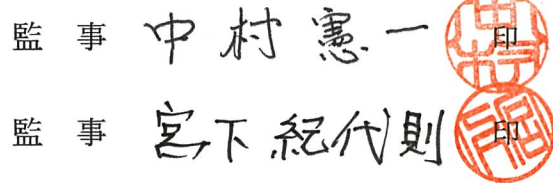 監事 中村憲一 印
監事 宮下紀代則 印